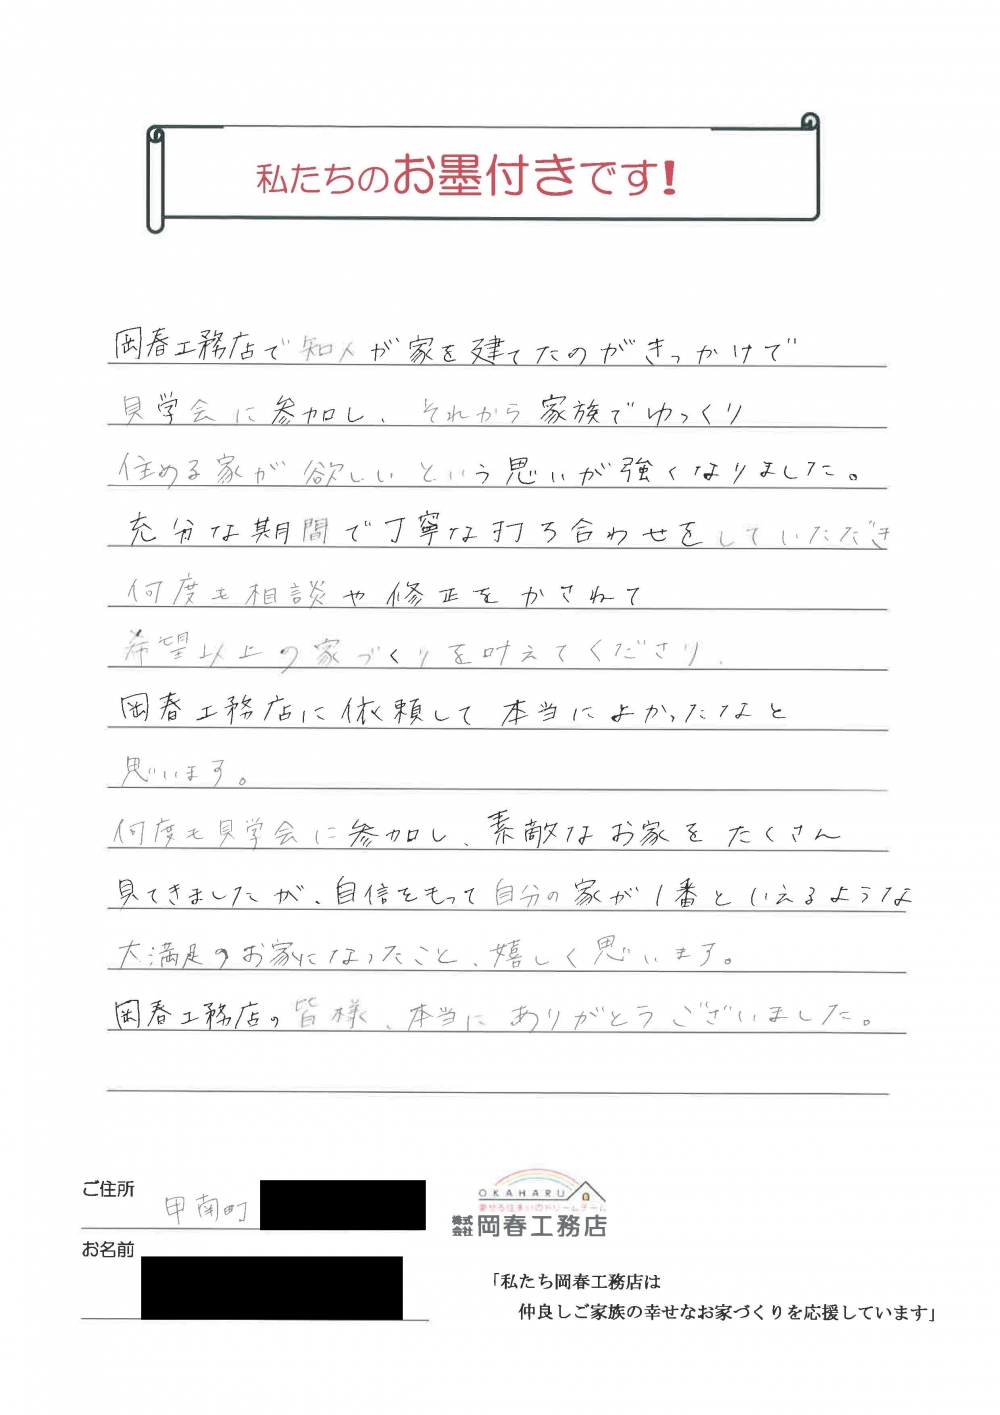 私たちのお墨付きです!
岡春工務店で知人が家を建てたのがきっかけで
見学会に参加し、それから家族でゆっくり
住める家が欲しいという思いが強くなりました。
充分な期間で丁寧な打ち合わせをしていただき
何度も相談や修正をかさねて
希望以上の家づくりを叶えてくださり、
岡春工務店に依頼して本当によかったなと
思います。
何度も見学会に参加し、素敵なお家をたくさん
見てきましたが、自信をもって自分の家が1番といえるような
大満足のお家になったこと、嬉しく思います。
岡春工務店の皆様、本当にありがとうございました。
ご住所 甲南町
お名前
OKAHARU
幸せな住まいのドリームチーム
株式会社 岡春工務店
「私たち岡春工務店は
仲良しご家族の幸せなお家づくりを応援しています」